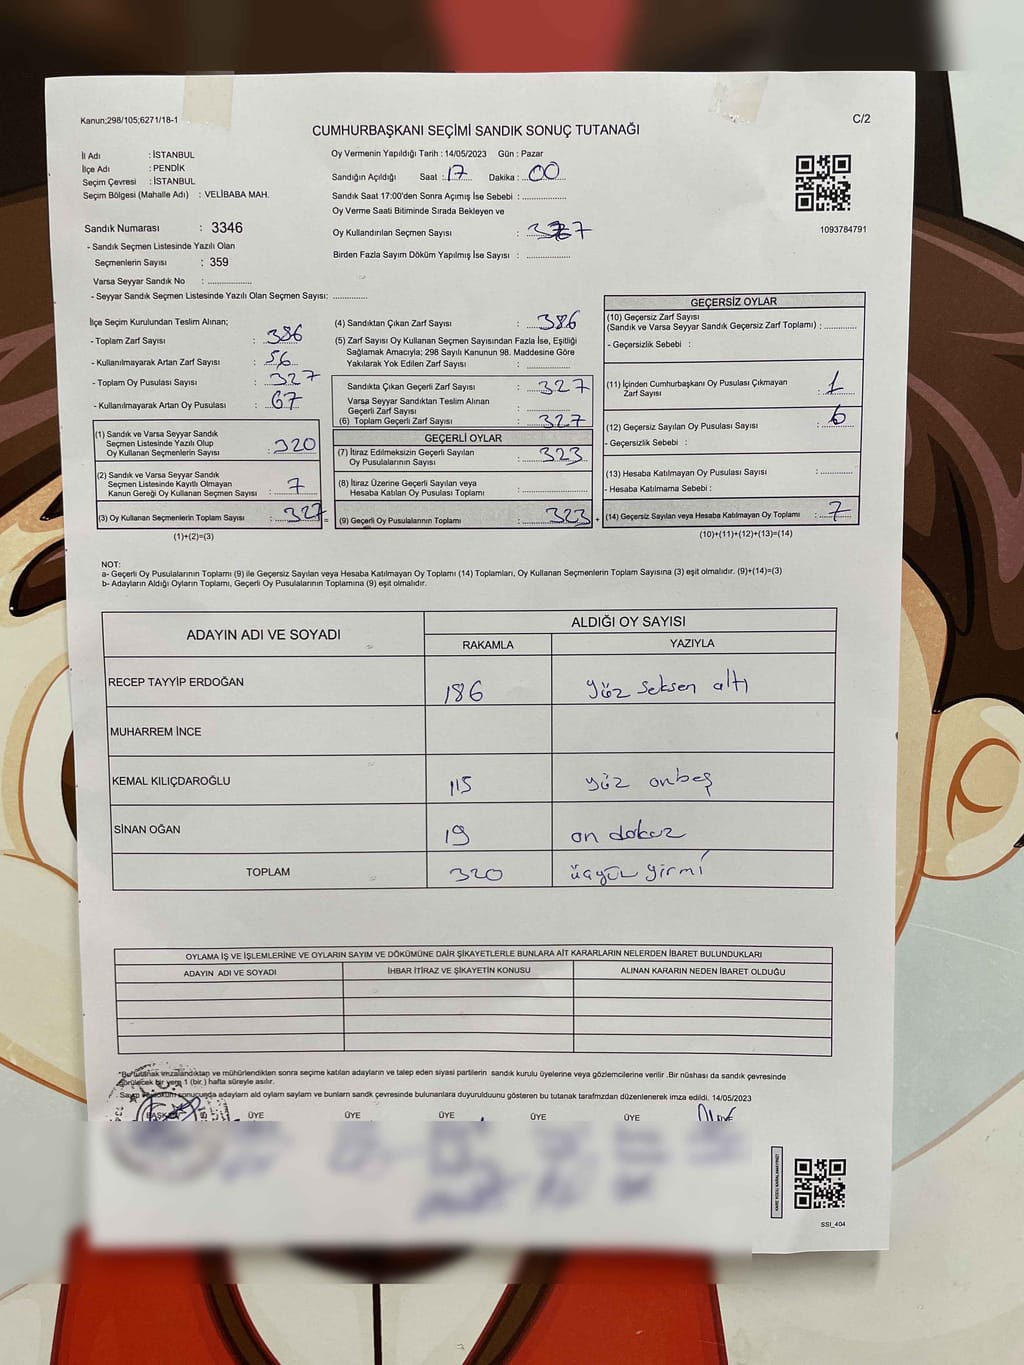 Kanun;298/105;6271/18-1
C/2
CUMHURBAŞKANI SEÇİMİ SANDIK SONUÇ TUTANAĞI
İl Adı : İSTANBUL
İlçe Adı : PENDİK
Seçim Çevresi : İSTANBUL
Seçim Bölgesi (Mahalle Adı) : VELİBABA MAH.
Oy Vermenin Yapıldığı Tarih : 14/05/2023 Gün : Pazar
Sandığın Açıldığı Saat : 17 Dakika : 00
Sandık Saat 17:00'den Sonra Açımış İse Sebebi :
Oy Verme Saati Bitiminde Sırada Bekleyen ve
Oy Kullandırılan Seçmen Sayısı :
Birden Fazla Sayım Döküm Yapılmış İse Sayısı :
1093784791
Sandık Numarası : 3346
- Sandık Seçmen Listesinde Yazılı Olan
Seçmenlerin Sayısı : 359
Varsa Seyyar Sandık No :
- Seyyar Sandık Seçmen Listesinde Yazılı Olan Seçmen Sayısı:
İlçe Seçim Kurulundan Teslim Alınan;
- Toplam Zarf Sayısı : 386
- Kullanılmayarak Artan Zarf Sayısı : 56
- Toplam Oy Pusulası Sayısı : 327
- Kullanılmayarak Artan Oy Pusulası : 67
(1) Sandık ve Varsa Seyyar Sandık
Seçmen Listesinde Yazılı Olup
Oy Kullanan Seçmenlerin Sayısı : 320
(2) Sandık ve Varsa Seyyar Sandık
Seçmen Listesinde Kayıtlı Olmayan
Kanun Gereği Oy Kullanan Seçmen Sayısı : 7
(3) Oy Kullanan Seçmenlerin Toplam Sayısı : 327 =
(1)+(2)=(3)
(4) Sandıktan Çıkan Zarf Sayısı : 386
(5) Zarf Sayısı Oy Kullanan Seçmen Sayısından Fazla İse, Eşitliği
Sağlamak Amacıyla; 298 Sayılı Kanunun 98. Maddesine Göre
Yakılarak Yok Edilen Zarf Sayısı :
Sandıkta Çıkan Geçerli Zarf Sayısı : 327
Varsa Seyyar Sandıktan Teslim Alınan
Geçerli Zarf Sayısı :
(6) Toplam Geçerli Zarf Sayısı : 327
GEÇERLİ OYLAR
(7) İtiraz Edilmeksizin Geçerli Sayılan
Oy Pusulalarının Sayısı : 323
(8) İtiraz Üzerine Geçerli Sayılan veya
Hesaba Katılan Oy Pusulası Toplamı :
(9) Geçerli Oy Pusulalarının Toplamı : 323 +
GEÇERSİZ OYLAR
(10) Geçersiz Zarf Sayısı
(Sandık ve Varsa Seyyar Sandık Geçersiz Zarf Toplamı) :
- Geçersizlik Sebebi :
(11) İçinden Cumhurbaşkanı Oy Pusulası Çıkmayan
Zarf Sayısı : 1
(12) Geçersiz Sayılan Oy Pusulası Sayısı : 6
- Geçersizlik Sebebi :
(13) Hesaba Katılmayan Oy Pusulası Sayısı :
- Hesaba Katılmama Sebebi :
(14) Geçersiz Sayılan veya Hesaba Katılmayan Oy Toplamı : 7
(10)+(11)+(12)+(13)=(14)
NOT:
a- Geçerli Oy Pusulalarının Toplamı (9) ile Geçersiz Sayılan veya Hesaba Katılmayan Oy Toplamı (14) Toplamları, Oy Kullanan Seçmenlerin Toplam Sayısına (3) eşit olmalıdır. (9)+(14)=(3)
b- Adayların Aldığı Oyların Toplamı, Geçerli Oy Pusulalarının Toplamına (9) eşit olmalıdır.
ADAYIN ADI VE SOYADI
ALDIĞI OY SAYISI
RAKAMLA YAZIYLA
RECEP TAYYİP ERDOĞAN 186 yüz seksen altı
MUHARREM İNCE
KEMAL KILIÇDAROĞLU 115 yüz onbeş
SİNAN OĞAN 19 on dokuz
TOPLAM 320 üçyüz yirmi
OYLAMA İŞ VE İŞLEMLERİNE VE OYLARIN SAYIM VE DÖKÜMÜNE DAİR ŞİKAYETLERLE BUNLARA AİT KARARLARIN NELERDEN İBARET BULUNDUKLARI
ADAYIN ADI VE SOYADI İHBAR İTİRAZ VE ŞİKAYETİN KONUSU ALINAN KARARIN NEDEN İBARET OLDUĞU
"Bu tutanak imzalandıktan ve mühürlendikten sonra seçime katılan adayların ve talep eden siyasi partilerin sandık kurulu üyelerine veya gözlemcilerine verilir .Bir nüshası da sandık çevresinde
görülecek bir yere 1 (bir.) hafta süreyle asılır.
Sayım ve döküm sonucunda adayların ald oyların sayların ve bunların sandık çevresinde bulunanlara duyurulduunu gösteren bu tutanak tarafmzdan düzenlenerek imza edildi. 14/05/2023
BAŞKAN ÜYE ÜYE ÜYE ÜYE ÜYE
SSI_404